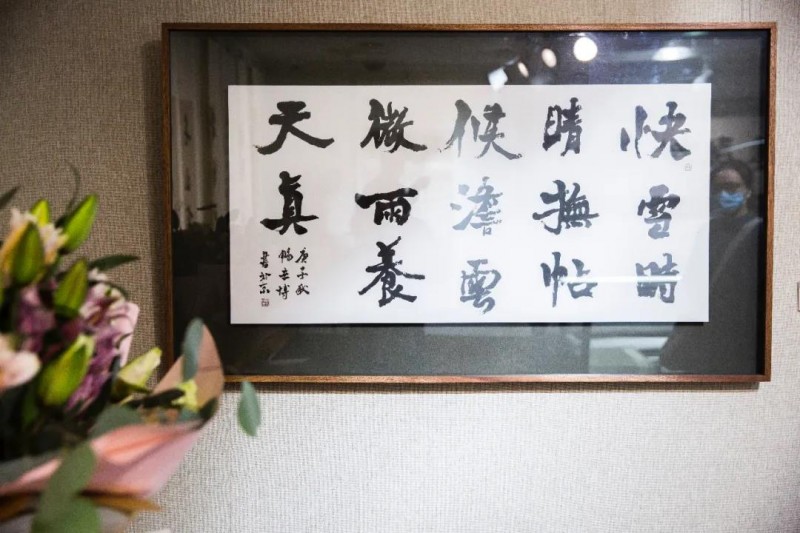 快雪時
晴撫帖
候澹雲
微雨養
天真
庚子秋
楊士博
書於京